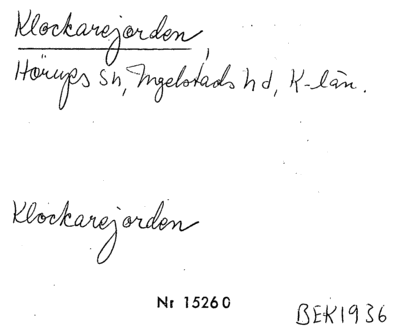 Klockarejorden,
Hörups sn, Ingelstads hd, K-län.
Klockarejorden
Nr 15260
BEK1936